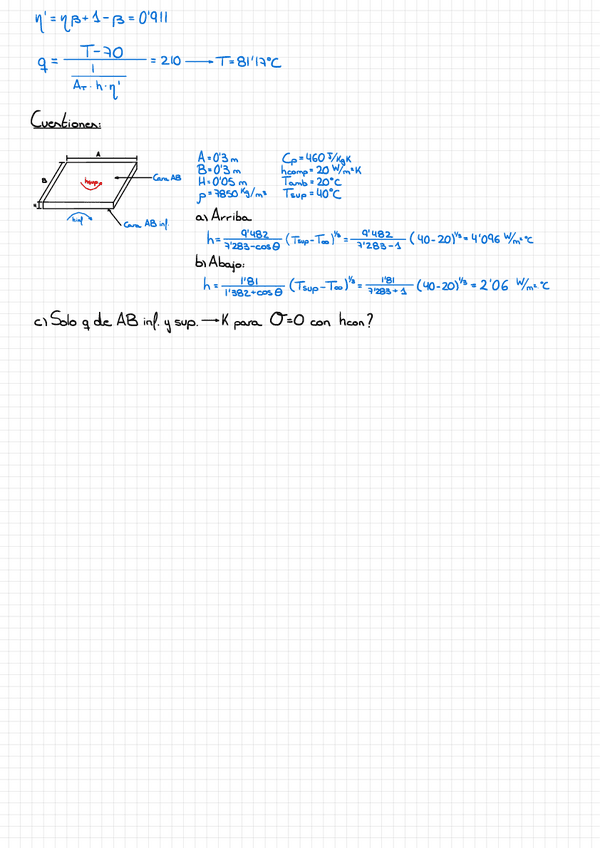 η' = ηβ + 1 - β = 0'911
q = (T - 70) / (1 / (A_T · h · η')) = 210 → T = 81'17°C
Cuestiones:
A
B
H
hcomp
hinf
Cara AB
Cara AB inf.
A = 0'3 m
B = 0'3 m
H = 0'05 m
ρ = 7850 Kg/m³
Cp = 460 J/KgK
hcomp = 20 W/m²K
Tamb = 20°C
Tsup = 40°C
a) Arriba
h = 9'482 / (7'283 - cosθ) (Tsup - T∞)^1/3 = 9'482 / (7'283 - 1) (40 - 20)^1/3 = 4'096 W/m²°C
b) Abajo:
h = 1'81 / (1'382 + cosθ) (Tsup - T∞)^1/3 = 1'81 / (7'283 + 1) (40 - 20)^1/3 = 2'06 W/m²°C
c) Solo q de AB inf. y sup. → K para σ = 0 con hcon?